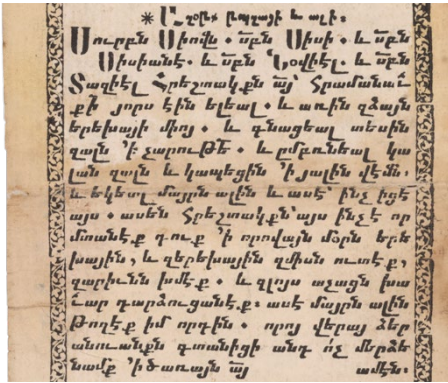 ✷ Աղօթք թպղայի և ալի։
Սուրբն Սիովն ՝ սբն Սիսի ՝ և սբն
Սիսիանէ ՝ և սբն Կօվիէլ ՝ և սբն
Տազիէլ Հրեշտակքն այ՝ Հրամանաւ
քի յորս էին ելեալ ՝ և առին զձայն
երեխայի միոյ ՝ և գնացեալ տեսին
զայն ՚ի չարութե ՝ և ըմբռնեալ կա
լան զալն և կապեցին ՚ի յալին վէմն։
և եկեալ մայրն ալին և ասէ՝ ինչ իցէ
այս ՝ ասեն Հրեշտակքն՝ այս ինչ է որ
մտանէք դուք ՚ի որովայն մօրն երե
խային, և զերեխային զմիսն ուտէք,
զարիւնն խմէք ՝ և զլոյս աչացն խա
ւար դարձուցանէք։ ասէ մայրն ալին
Թողէք իմ որդին ՝ որոյ վերայ ձեր
անուանքն գտանիցի անդ ո՛չ մերձե
նամք ՚ի ծառայն այ ամէն։